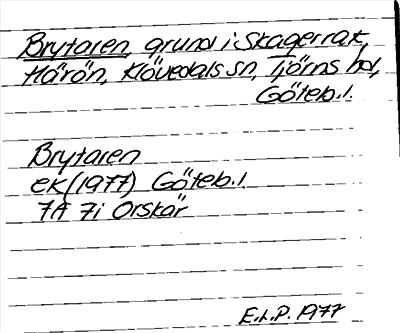 Brytaren, grund i Skagerrak,
Härön, Klövedals sn, Tjörns hd,
Göteb. l.
Brytaren
ek (1977) Göteb. l
7A 7i Orskär
E.L.P. 1977